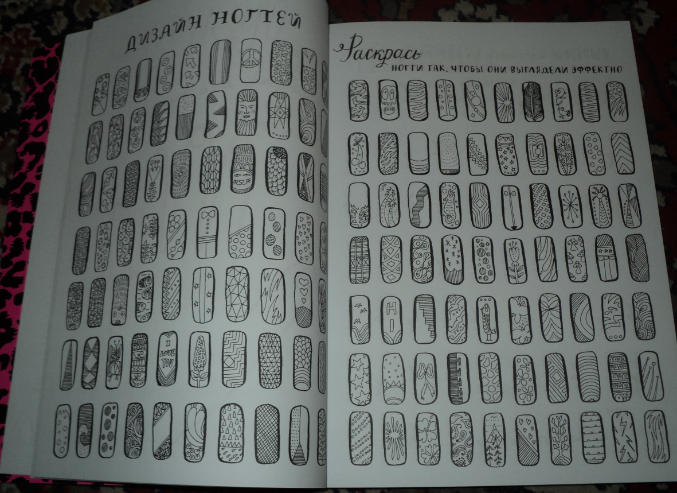 ДИЗАЙН НОГТЕЙ
Раскрась
НОГТИ ТАК, ЧТОБЫ ОНИ ВЫГЛЯДЕЛИ ЭФФЕКТНО
HI